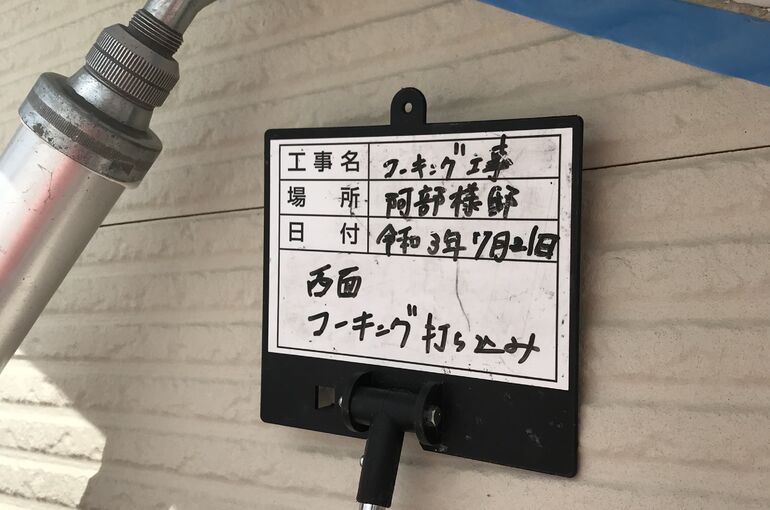 工事名 コーキング工事
場所 阿部様邸
日付 令和3年7月21日
西面
コーキング打ち込み